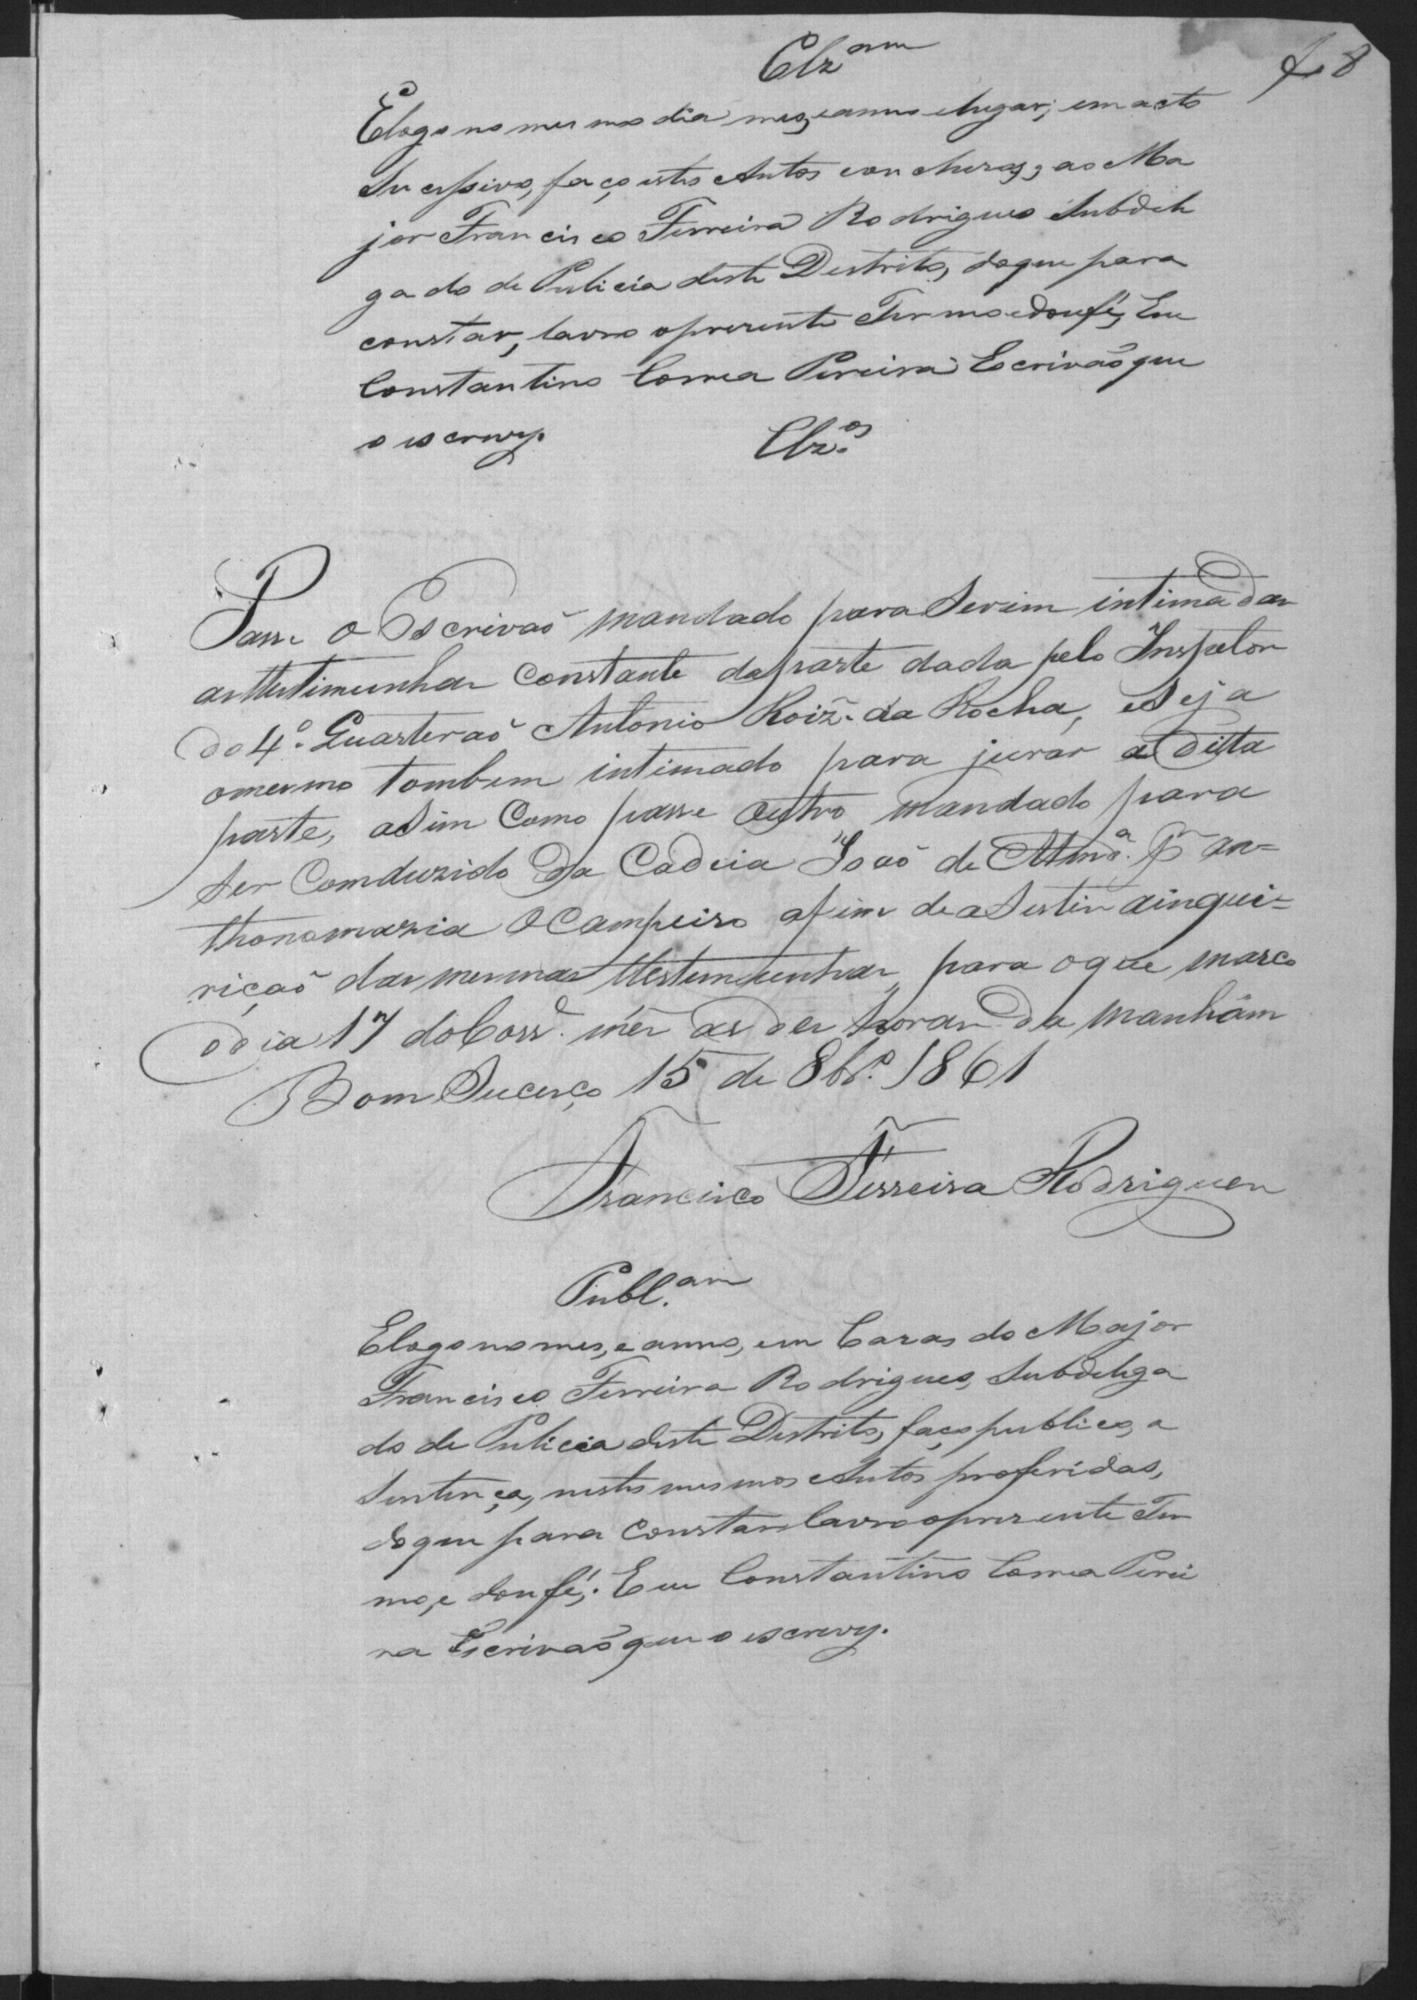 Clz.am
f 8
E logo no mesmo dia mes, e anno e lugar; em acto
Sucessivo, faço estes Autos concluzos, ao Ma
jor Francisco Ferreira Rodrigues Subdele
gado de Pulicia deste Destrito, do que para
constar, lavro o prezente Termo e dou fé, Eu
Constantino Correa Pereira Escrivaõ que
o escrevy.
Clz.os
Passe o Escrivaõ mandado para serem intimadas
as ttestimunhas constante da parte dada pelo Inspetor
do 4.º Quarteraõ Antonio Roiz. da Rocha, e seja
o mesmo tombem intimado para jurar a ditta
parte, asim como passe outro mandado para
ser comduzido da Cadeia Joaõ de Alm.da p.r an=
thonomazia o Campeiro afim de asestir a inquei=
riçaõ das mesmas ttestimunhas, para o que marco
o dia 17 do Corr.e mês as des horas da manhám
Bom Sucerço 15 de 8br.o 1861
Francisco Ferreira Rodrigues
Publ.am
E logo no mes, e anno, em Cazas do Major
Francisco Ferreira Rodrigues, Subdelega
do de Pulicia deste Destrito, faço publico, a
Sentença, nestes mesmos Autos proferidas,
do que para constar lavro o prezente Ter
mo, e dou fé,. Eu Constantino Correa Perei
ra Escrivaõ que o escrevy.